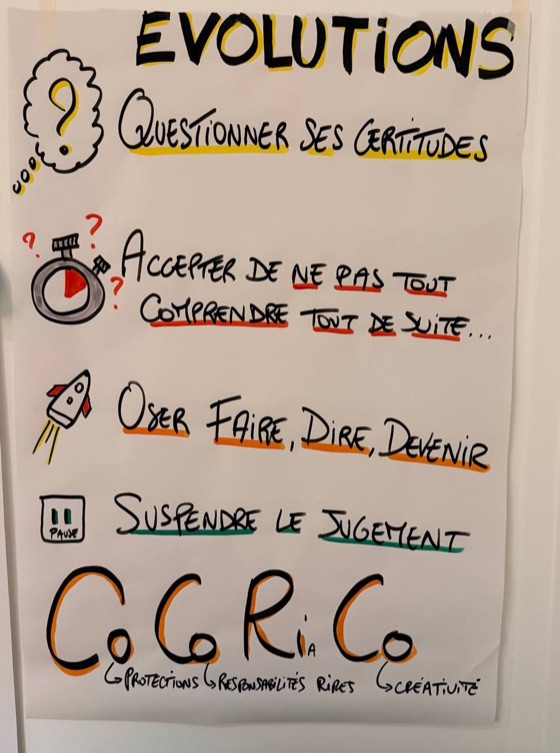 EVOLUTIONS
?
QUESTIONNER SES CERTITUDES
? ? ?
ACCEPTER DE NE PAS TOUT
COMPRENDRE TOUT DE SUITE...
OSER FAIRE, DIRE, DEVENIR
PAUSE
SUSPENDRE LE JUGEMENT
Co Co RiA Co
PROTECTIONS RESPONSABILITÉS RIRES CRÉATIVITÉ